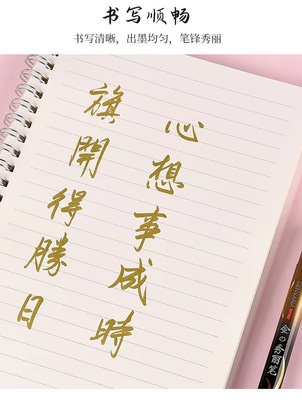 书写顺畅
书写清晰，出墨均匀，笔锋秀丽
心想事成時
旗開得勝日
金の秀丽笔